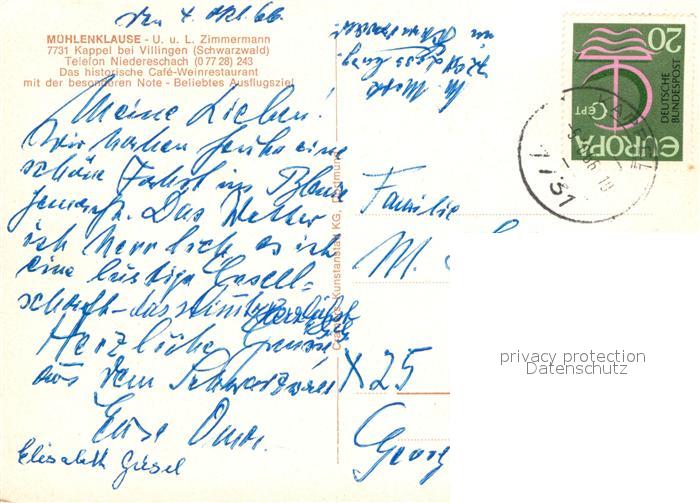 den 4. Okt. 66.
MÜHLENKLAUSE - U. u. L. Zimmermann
7731 Kappel bei Villingen (Schwarzwald)
Telefon Niedereschach (0 77 28) 243
Das historische Café-Weinrestaurant
mit der besonderen Note - Beliebtes Ausflugsziel
Meine Lieben!
Wir haben heute eine
schöne Fahrt ins Blaue
gemacht. Das Wetter
ist herrlich es ist
eine lustige Gesell-
schaft - das stimmt
Herzliche Grüsse
aus dem Schwarzwald
Eure Oma.
Elisabeth Giesel
Kunstanstalt KG, Dortmund
20
DEUTSCHE
BUNDESPOST
CEPT
EUROPA
KAPPEL
7731
Familie
M.
X 25
Georg
privacy protection
Datenschutz